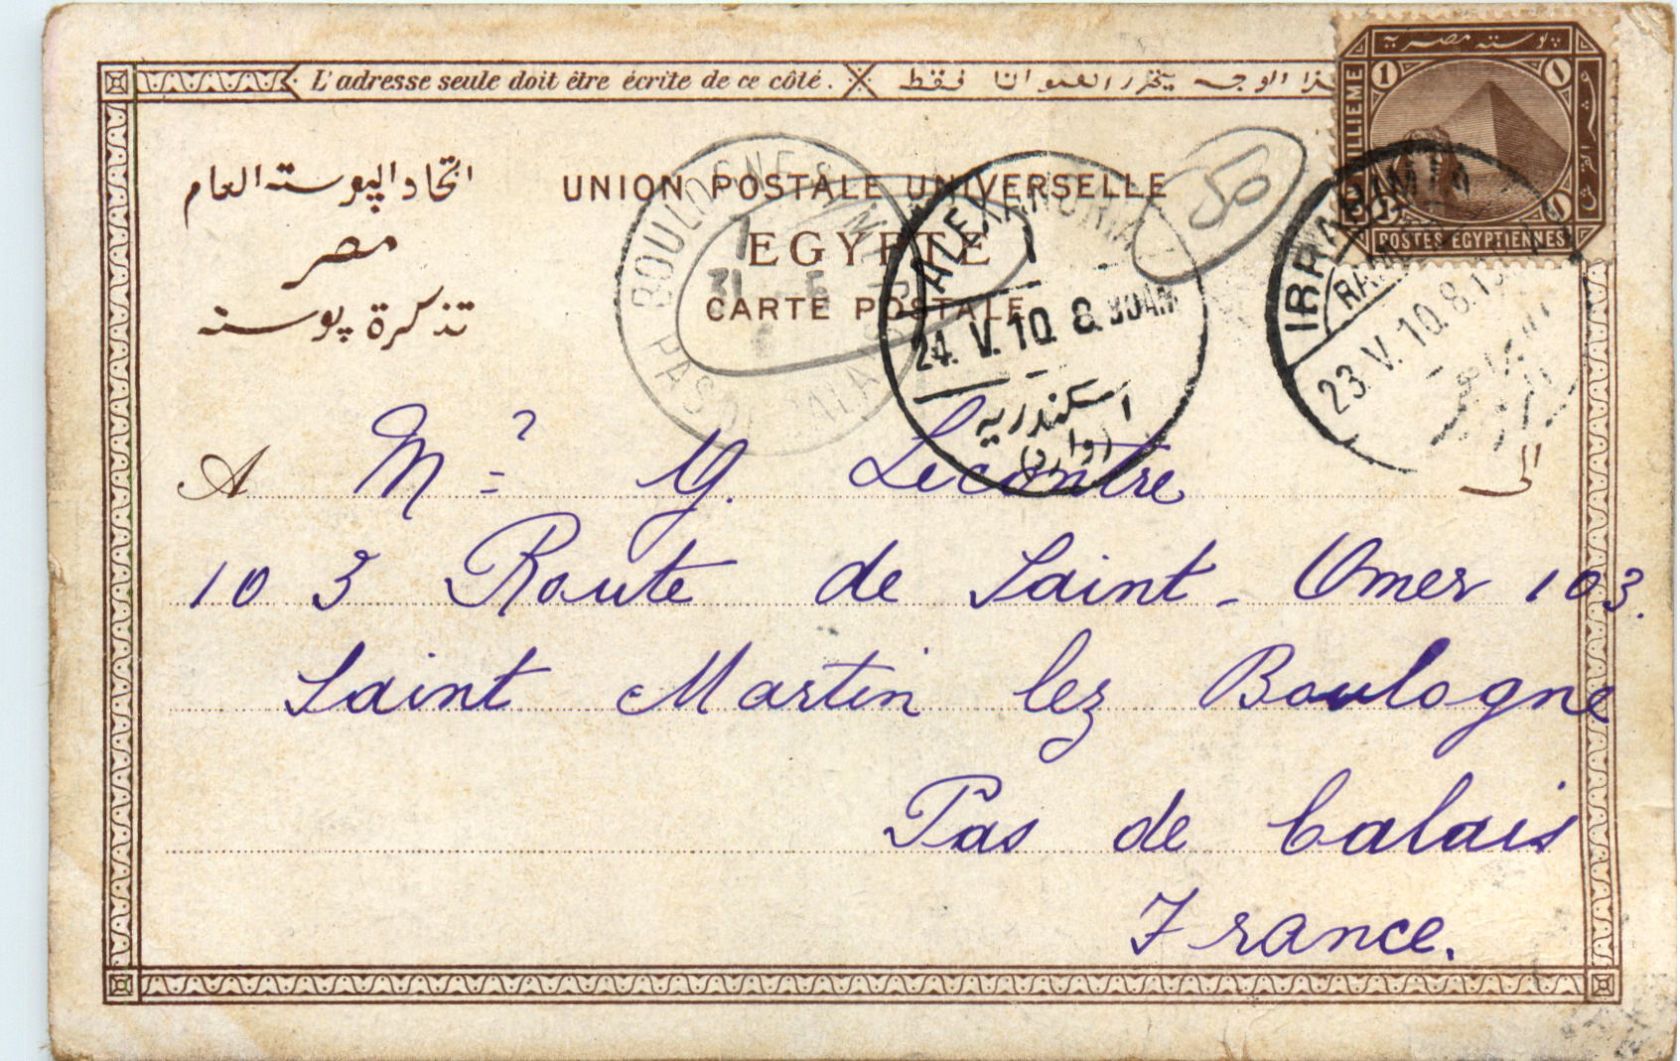 L'adresse seule doit être écrite de ce côté.
هذا الوجه يحرر العنوان فقط
پوسته مصريه
1
١
POSTES EGYPTIENNES
اتحاد البوسته العام
مصر
تذكرة پوسته
UNION POSTALE UNIVERSELLE
EGYPTE
CARTE POSTALE
50
BOULOGNE S MER
31 - 5
PAS DE CALAIS
ALEXANDRIA
24. V. 10. 8.30AM
اسكندريه
(وارد)
IBRAHIMIA
23. V. 10. 8.
A Mr G. Lecontre
الى
103 Route de Saint-Omer 103.
Saint Martin lez Boulogne
Pas de Calais
France.